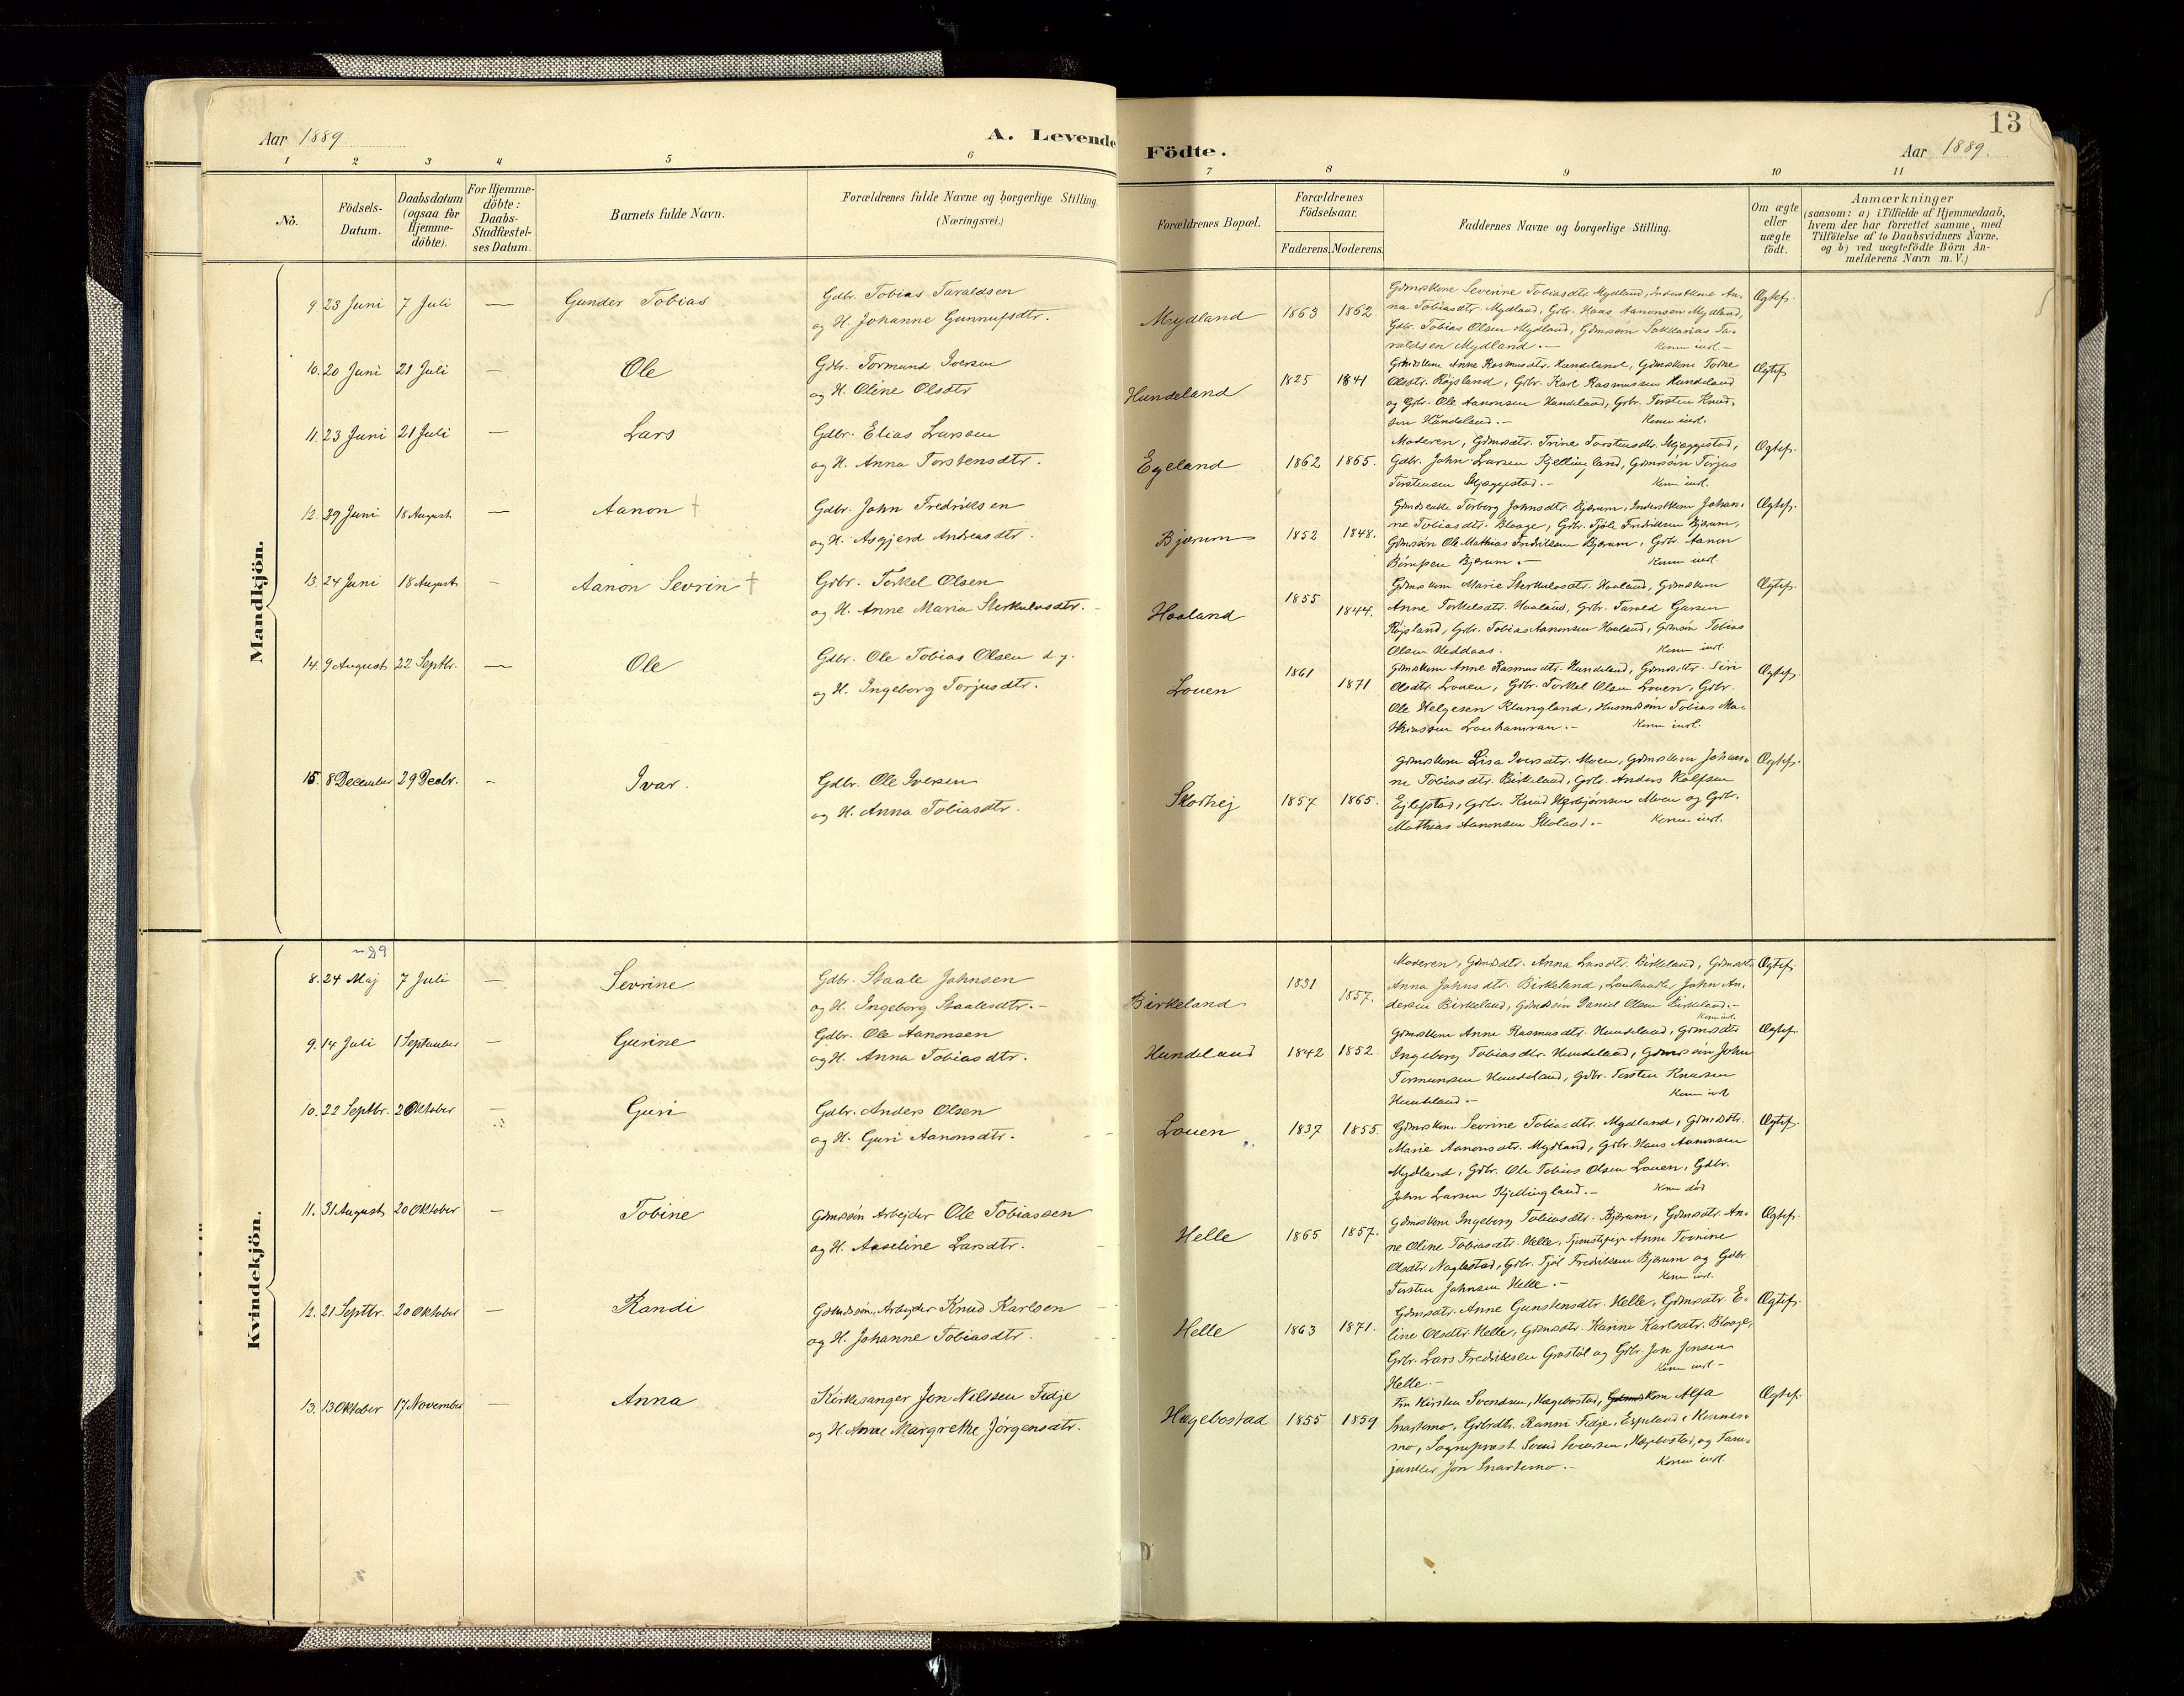 13
Aar 1889
A. Levende
Födte.
Aar 1889.
1 2 3 4 5 6 7 8 9 10 11
No.
Födsels-
Datum.
Daabsdatum
(ogsaa for
Hjemme-
döbte).
For Hjemme-
döbte:
Daabs-
Stadfæstel-
ses Datum.
Barnets fulde Navn.
Forældrenes fulde Navne og borgerlige Stilling.
(Næringsvei.)
Forældrenes Bopæl.
Forældrenes
Födselsaar.
Faderens. Moderens.
Faddernes Navne og borgerlige Stilling.
Om ægte
eller
uægte
födt.
Anmærkninger
(saasom: a) i Tilfælde af Hjemmedaab,
hvem der har forrettet samme, med
Tilföielse af to Daabsvidners Navne,
og b) ved uægtefödte Börn An-
melderens Navn m. V.)
Mandkjön.
9 23 Juni 7 Juli — Gunder Tobias
Gdbr. Tobias Taraldsen
og H. Johanne Gunnufsdtr.
Mydland 1863 1862
Gdmskone Severine Tobiasdtr. Mydland, Inderstkone An-
na Tobiasdtr. Mydland, Gbr. Haas Aanonsen Mydland,
Gdbr. Tobias Olsen Mydland, Gdmssøn Sakkarias Ta-
raldsen Mydland. —
Ægtef.
10. 20 Juni 21 Juli — Ole
Gdbr. Tormund Iversen
og H. Oline Olsdtr
Hundeland 1825 1841
Gdmskone Anne Rasmusdtr. Hundeland, Gdmskone Torine
Olsdtr. Røjsland, Gdbr. Karl Rasmussen Hundeland
og Gdbr. Ole Aanonsen Hundeland, Gdbr. Torsten Knud-
sen Hundeland. —
Ægtef.
11. 23 Juni 21 Juli — Lars
Gdbr. Elias Larssen
og H. Anna Torstensdtr.
Egeland 1862 1865.
Moderen, Gdmsdtr. Trine Torstensdtr. Skjeggestad,
Gdbr. John Larsen Kjellingland, Gdmssøn Torjus
Torstensen Skjeggestad. —
Ægtef.
12. 29 Juni 18 August — Aanon †
Gdbr. John Fredriksen
og H. Asgjerd Andreasdtr.
Bjærum 1852 1848.
Gmdsenke Torborg Johnsdtr. Bjærum, Inderstkone Johan-
ne Tobiasdtr. Blaage, Gdbr. Tjøl Fredriksen Bjærum,
Gdmssøn Ole Mathias Fredriksen Bjærum, Gdbr. Aanon
Bjærum. —
Ægtef.
13. 24 Juni 18 August — Aanon Sevrin †
Gdbr. Torkel Olsen
og H. Anne Maria Sterkulvsdtr. —
Haaland 1855 1844.
Gdmskone Marie Sterkulvsdtr. Haaland, Gdmskone
Anne Torkelsdtr. Haaland, Gdbr. Tarald
Røjsland, Gdbr. Tobias Aanonsen Haaland, Gdmssøn Tobias
Olsen Heddaas.
Ægtef.
14. 9 August 22 Septbr. — Ole
Gdbr. Ole Tobias Olsen d. y.
og H. Ingeborg Torjusdtr.
Louen 1861 1871
Gdmskone Anne Rasmusdtr. Hundeland, Gdmsdtr. Siri
Olsdtr. Louen, Gdbr. Torkel Olsen Louen, Gdbr.
Ole Helgesen Klungland, Husmdssøn Tobias Ma-
thiassen Louhamran. —
Ægtef.
15. 8 December 29 Decbr. — Ivar.
Gdbr. Ole Iversen
og H. Anna Tobiasdtr.
Skorhej 1857 1865.
Gdmskone Lisa Iversdtr. Moen, Gdmskone Johan-
ne Tobiasdtr. Birkeland, Gdbr. Anders Rolfsen
Eglefstad, Gdbr. Knud Herbjørnsen Moen og Gdbr.
Mathias Aanonsen Skoland. —
Ægtef.
Kvindekjön.
8. 24 Maj 7 Juli — Sevrine
Gdbr. Staale Johnsen
og H. Ingeborg Staalesdtr. —
Birkeland 1831 1857.
Moderen, Gdmsdtr. Anna Larsdtr. Birkeland, Gdmsdtr
Anna Johnsdtr. Birkeland, Landhandler John An-
dersen Birkeland, Gdmdssøn Daniel Olsen Birkeland. —
Ægtef.
9. 14 Juli 1 September — Gurine
Gdbr. Ole Aanonsen
og H. Anna Tobiasdtr.
Hundeland 1842 1852.
Gdmskone Anne Rasmusdtr. Hundeland, Gdmsdtr
Ingeborg Tobiasdtr. Hundeland, Gdmssøn John
Tormunsen Hundeland, Gdbr. Torsten Knudsen
Hundeland —
Ægtef.
10. 22 Septbr. 20 Oktober — Guri
Gdbr. Anders Olsen
og H. Guri Aanonsdtr.
Louen 1837 1855.
Gdmskone Sevrine Tobiasdtr. Mydland, Gdmsdtr.
Marie Aanonsdtr. Mydland, Gdbr. Hans Aanonsen
Mydland, Gdbr. Ole Tobias Olsen Louen, Gdbr.
John Larsen Kjellingland. —
Ægtef.
11. 31 August 20 Oktober — Tobine
Gdmssøn Arbejder Ole Tobiassen
og H. Aaseline Larsdtr.
Helle 1865 1857.
Gdmskone Ingeborg Tobiasdtr. Bjærum, Gdmsdtr. An-
ne Oline Tobiasdtr. Helle, Tjenstepige Anne Tomine
Olsdtr. Naglestad, Gdbr. Tjøl Fredriksen Bjærum og Gdbr.
Torsten Johnsen Helle. —
Ægtef.
12. 21 Septbr. 20 Oktober — Randi
Gdmdssøn, Arbejder Knud Karlsen
og H. Johanne Tobiasdtr.
Helle 1863 1871.
Gdmsdtr. Anne Gunstensdtr. Helle, Gdmsdtr. E-
line Olsdtr. Helle, Gdmsdtr. Karine Karlsdtr. Blaage,
Gdbr. Lars Fredriksen Grastøl og Gdbr. Jon Jonsen
Helle. —
Ægtef.
13. 13 Oktober 17 November — Anna
Kirkesanger Jon Nilssen Fidje
og H. Anne Margrethe Jørgensdtr.
Hægebostad 1855 1859
Fru Kirsten Svendsen, Hægebostad, Kone Alfa
Snartemo, Gdbrdtr. Ranni Fidje, Espeland i Konnes-
mo, Sogneprest Svend Svendsen, Hægebostad, og Fane-
junker Jon Snartemo. —
Ægtef.